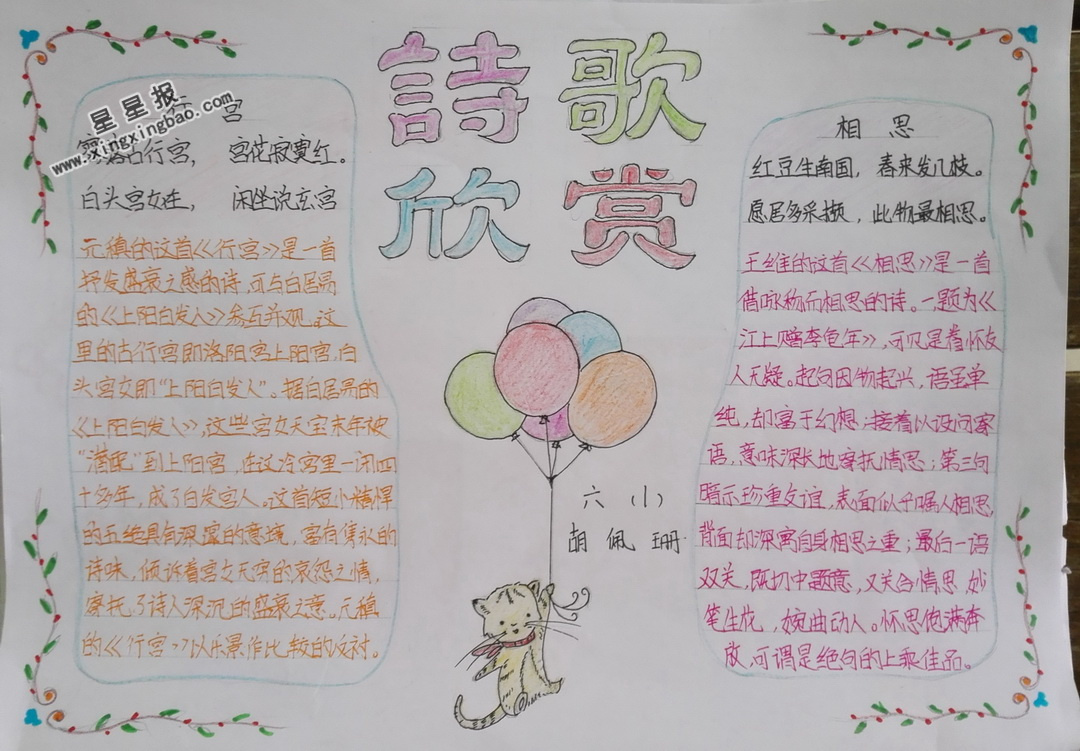 詩歌
欣赏
星星报
www.xingxingbao.com
宫
落古行宫， 宫花寂寞红。
白头宫女在， 闲坐说玄宫
元稹的这首《行宫》是一首
抒发盛衰之感的诗，可与白居易
的《上阳白发人》参互并观。这
里的古行宫即洛阳宫上阳宫，白
头宫女即“上阳白发人”。据白居易的
《上阳白发人》，这些宫女天宝末年被
“潜配”到上阳宫，在这冷宫里一闭四
十多年，成了白发宫人。这首短小精悍
的五绝具有深邃的意境，富有隽永的
诗味，倾诉着宫女无穷的哀怨之情，
寄托了诗人深沉的盛衰之意。元稹
的《行宫》以乐景作比较的反衬。
相思
红豆生南国，春来发几枝。
愿君多采撷，此物最相思。
王维的这首《相思》是一首
借咏物而相思的诗。一题为《
江上赠李龟年》，可见是着怀友
人无疑。起句因物起兴，语虽单
纯，却富于幻想；接着以设问寄
语，意味深长地寄托情思；第三句
暗示珍重友谊，表面似乎嘱人相思，
背面却深寓自身相思之重；最后一语
双关，既切中题意，又关合情思，妙
笔生花，婉曲动人。怀思饱满奔
放，可谓是绝句的上乘佳品。
六（小）
胡佩珊